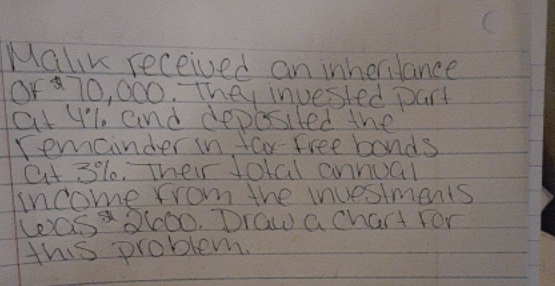 Malik received an inheritance
of $70,000. They invested part
at 4% and deposited the
remainder in tax-free bonds
at 3%. Their total annual
income from the investments
was $2600. Draw a chart for
this problem.